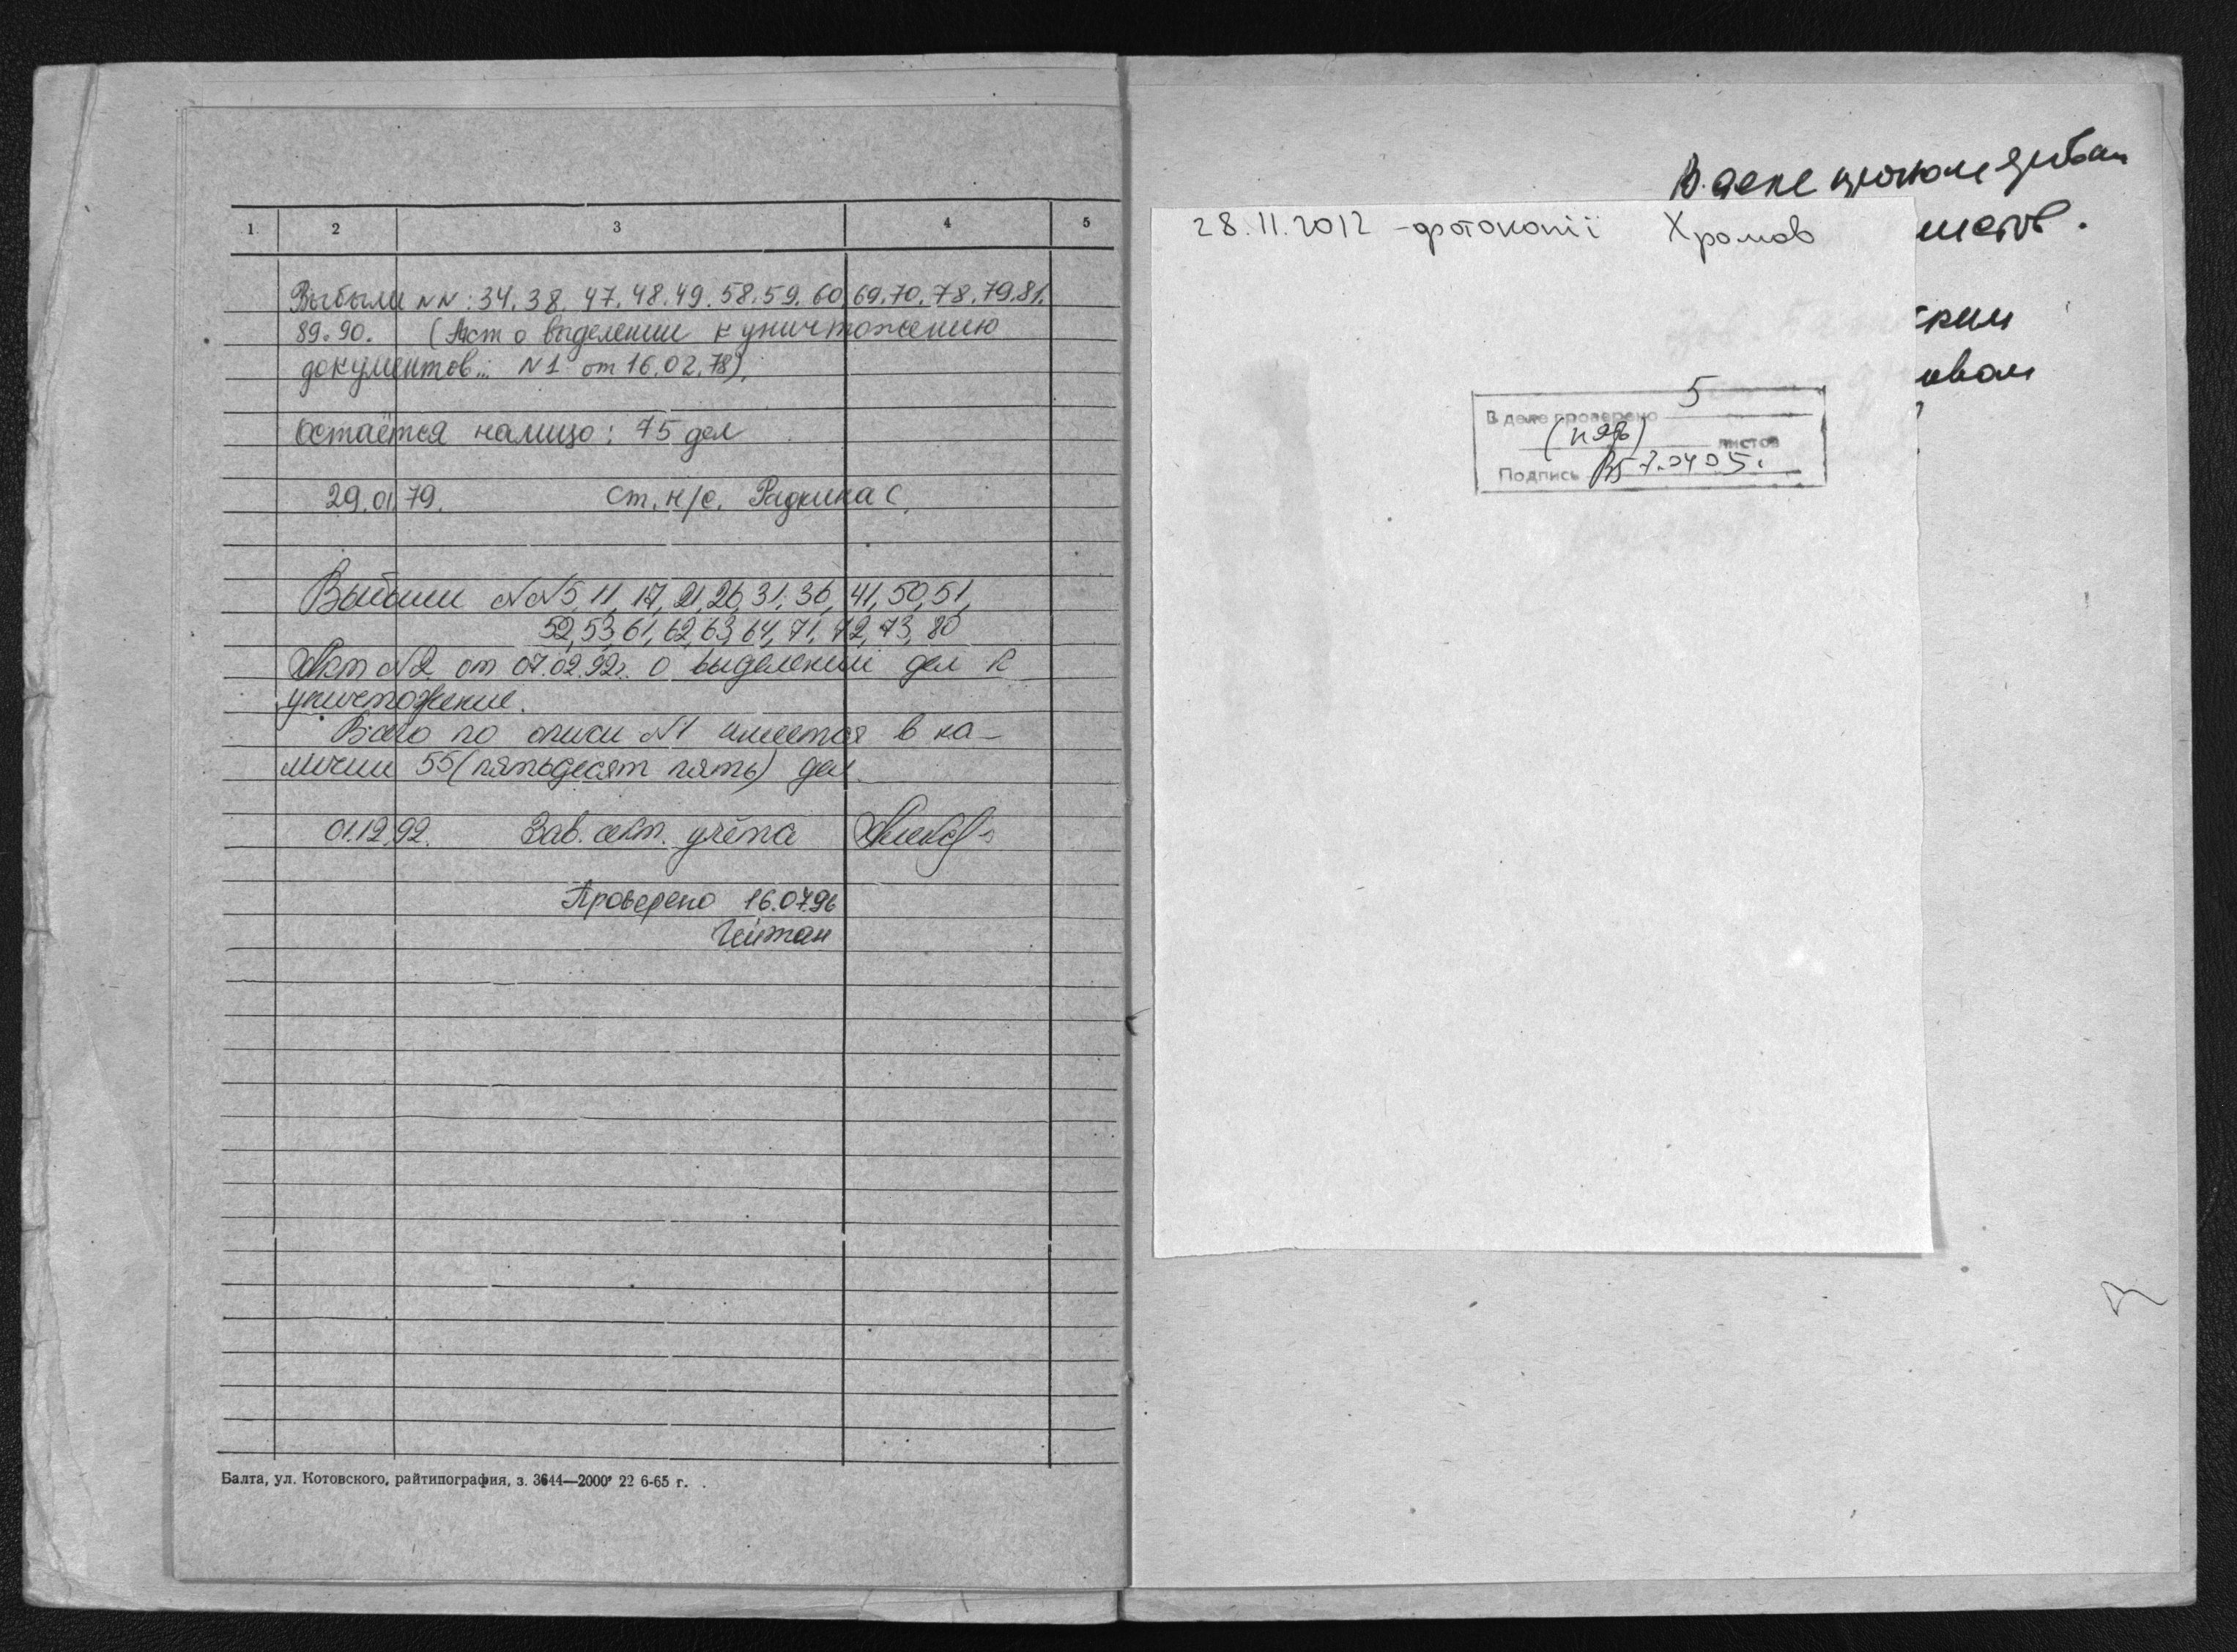 1 2 3 4 5
Выбыли NN: 34. 38. 47. 48. 49. 58. 59. 60. 69. 70. 78. 79. 81.
89. 90. (Акт о выделении к уничтожению
документов... N1 от 16.02.78).
Остаётся налицо: 75 дел
29.01.79. Ст. н/с. Радкина С.
Выбыли NN 5, 11, 17, 21, 26, 31, 36, 41, 50, 51,
52, 53, 61, 62, 63, 64, 71, 72, 73, 80
Акт N2 от 07.02.92г. о выделении дел к
уничтожение.
Всего по описи N1 имеется в на-
личии 55 (пятьдесят пять) дел.
01.12.92. Зав. сект. учёта
Проверено 16.07.96
Гейтан
Балта, ул. Котовского, райтипография, з. 3644—2000 22 6-65 г.
В деле
листов.
28.11.2012 - фотокопії Хромов
ским
овам
В деле проверено 5
(пять) листов
Подпись